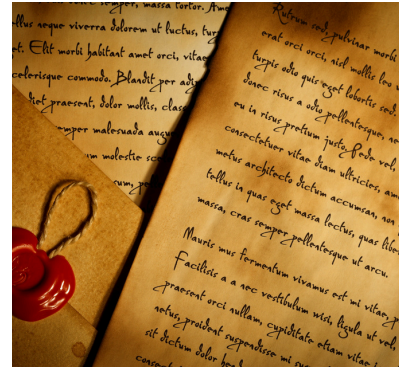 semper, massa tortor. Ame
llus neque viverra dolorem ut luctus, tur
et. Elit morbi habitant amet orci, vitae
celerisque commodo. Blandit per adip
diet praesent, dolor mollis, class
emper malesuada augu
um molestie sce
psum, p
Rutrum sed, pulvinar morbi
erat orci orci, nisl mollis leo v
turpis odio quis eget lobortis sed
donec risus a odio pellentesque, ne
eu in risus pretium justo. Pede vel,
consectetuer vitae diam ultricies, am
metus architecto dictum accumsan, non
tellus in quas eget massa lectus, quas liber
massa, cras semper pellentesque ut arcu.
Mauris mus fermentum vivamus est mi vitae, p
Facilisis a a nec vestibulum wisi, ligula ut vel,
praesent orci nullam, cupiditate etiam vitae
netus, proident suspendisse mi sus
sit dictum dolor hend
consec